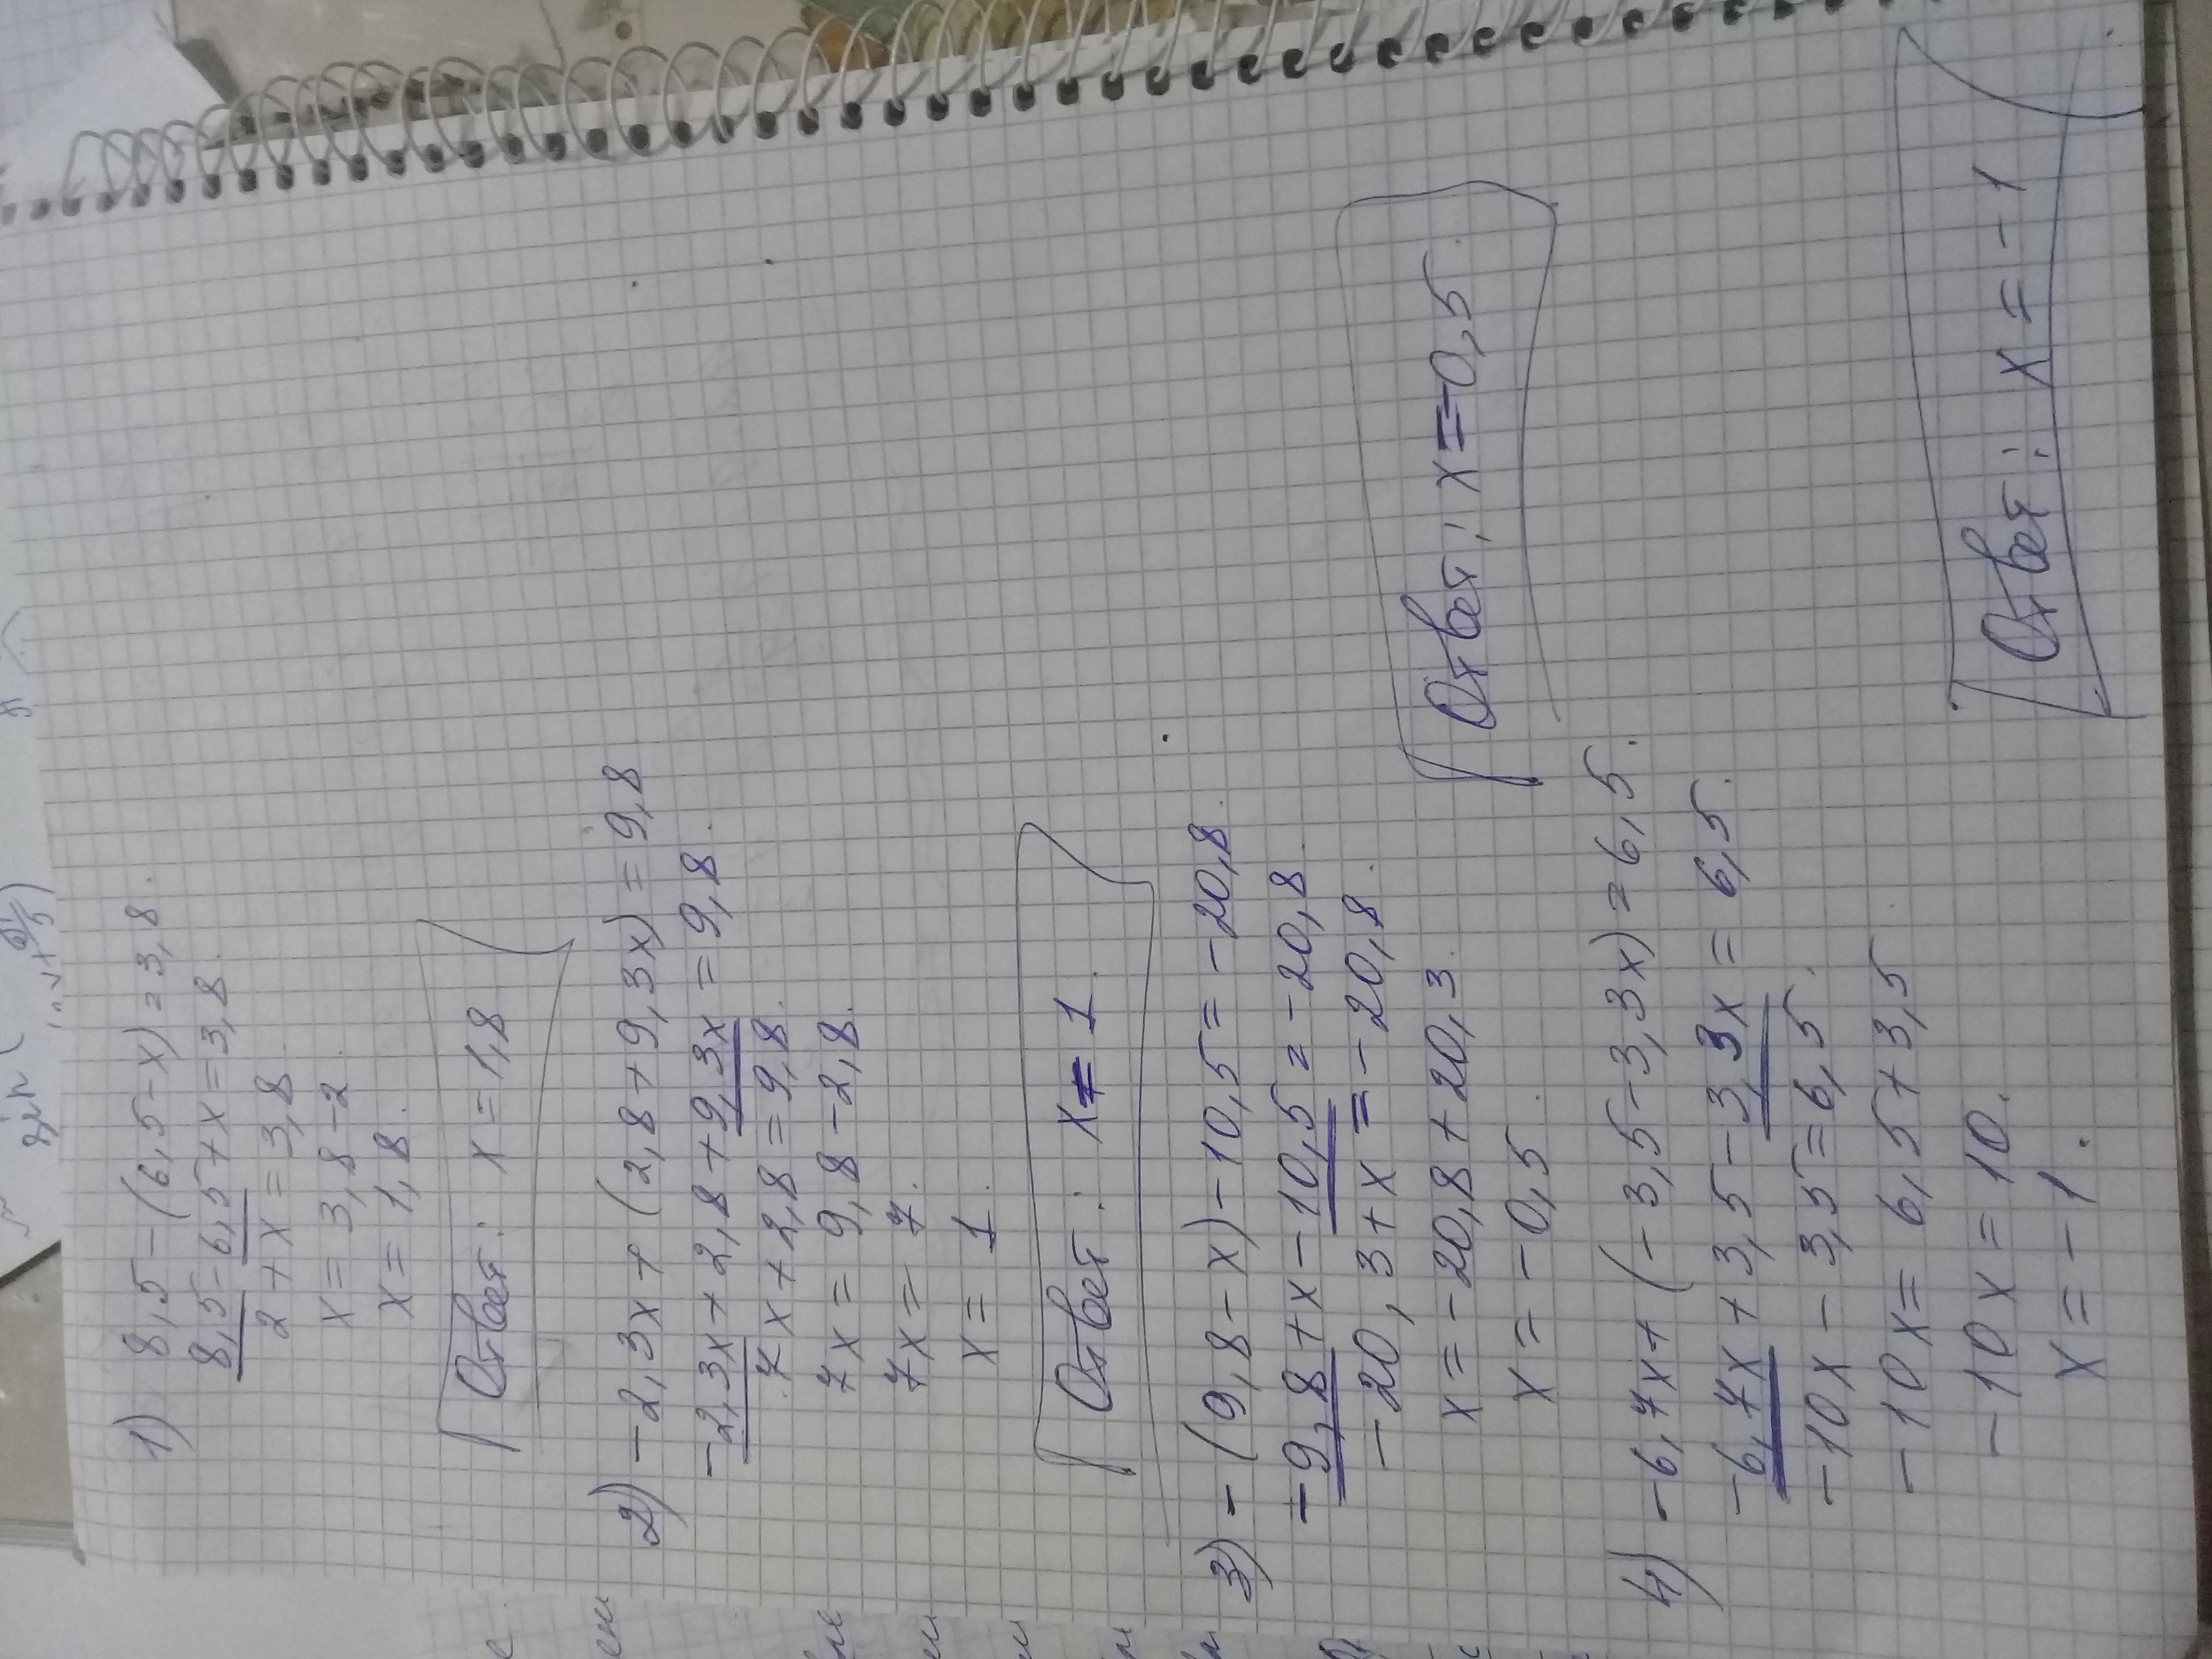 1) 8,5-(6,5-x)=3,8.
8,5-6,5+x=3,8.
2+x=3,8.
x=3,8-2.
x=1,8.
Ответ: x=1,8
2) -2,3x+(2,8+9,3x)=9,8
-2,3x+2,8+9,3x=9,8.
7x+2,8=9,8.
7x=9,8-2,8.
7x=7.
x=1.
Ответ: x=1.
3) -(9,8-x)-10,5=-20,8.
-9,8+x-10,5=-20,8.
-20,3+x=-20,8.
x=-20,8+20,3.
x=-0,5.
Ответ: x=-0,5.
4) -6,7x+(-3,5-3,3x)=6,5.
-6,7x+3,5-3,3x=6,5.
-10x-3,5=6,5.
-10x=6,5+3,5
-10x=10.
x=-1.
Ответ: x=-1